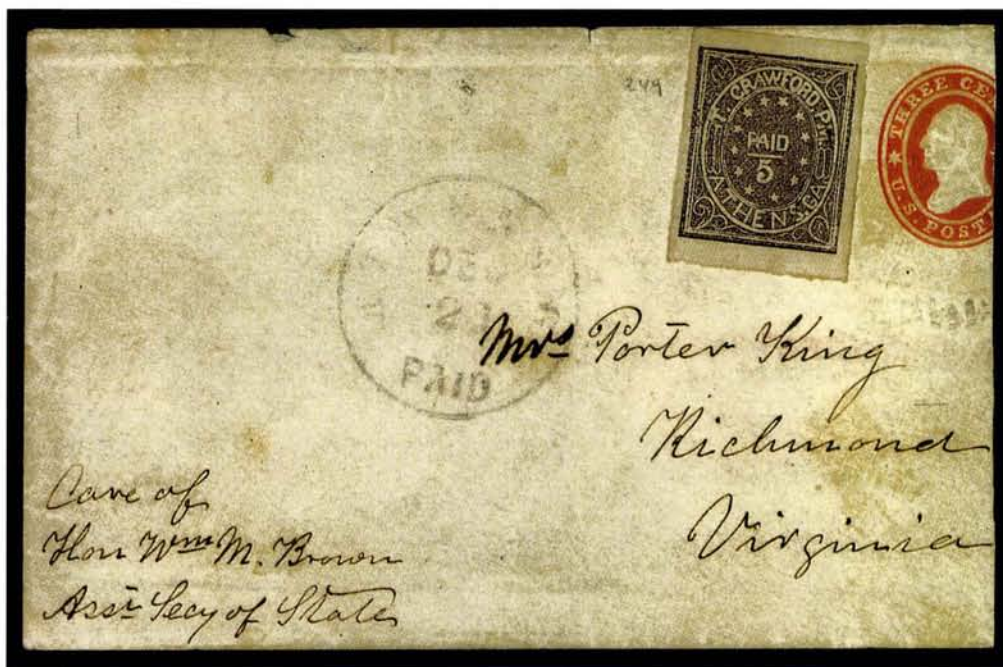 249
T. CRAWFORD P.M.
PAID
5
ATHENS, GA.
THREE CEN
U.S. POST
DE
2
PAID
Mrs Porter King
Richmond
Virginia
Care of
Hon Wm M. Brown
Asst Secy of State